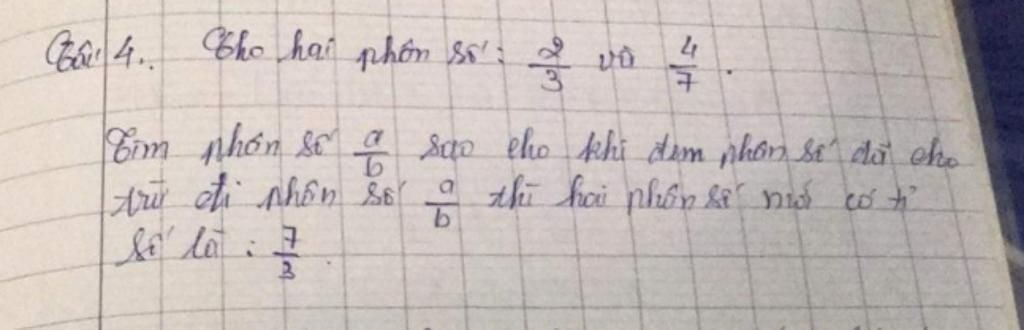 Câu 4.. Cho hai phân số: 2/3 và 4/7.
Tìm phân số a/b sao cho khi đem phân số đã cho
trừ đi phân số a/b thì hai phân số mới có tỉ
số là: 7/3.